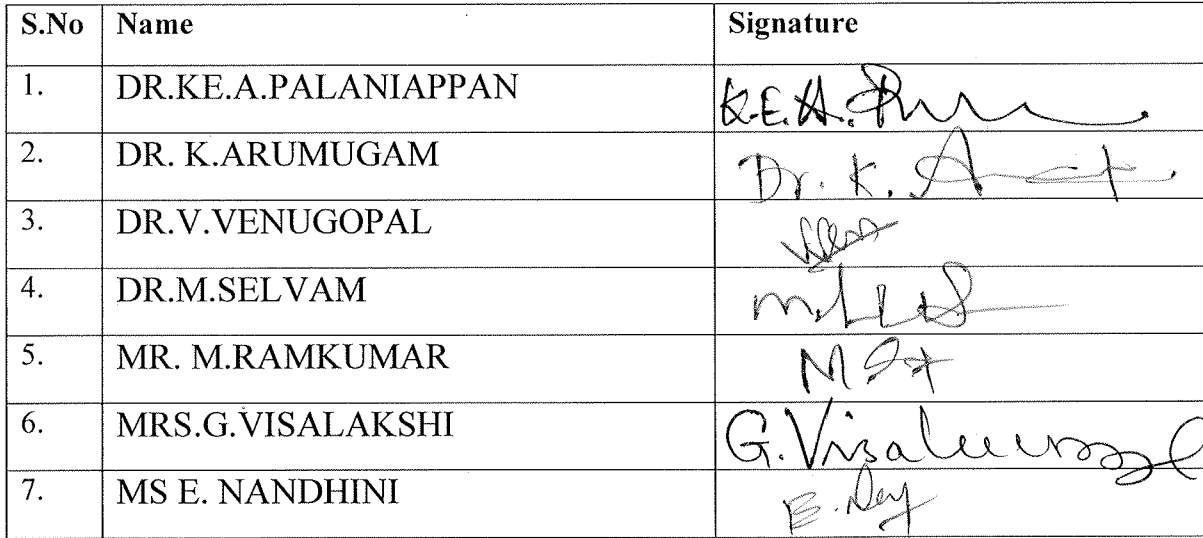 S.No Name Signature
1. DR.KE.A.PALANIAPPAN K.E.A.
2. DR. K.ARUMUGAM Dr. K.
3. DR.V.VENUGOPAL
4. DR.M.SELVAM
5. MR. M.RAMKUMAR
6. MRS.G.VISALAKSHI
7. MS E. NANDHINI